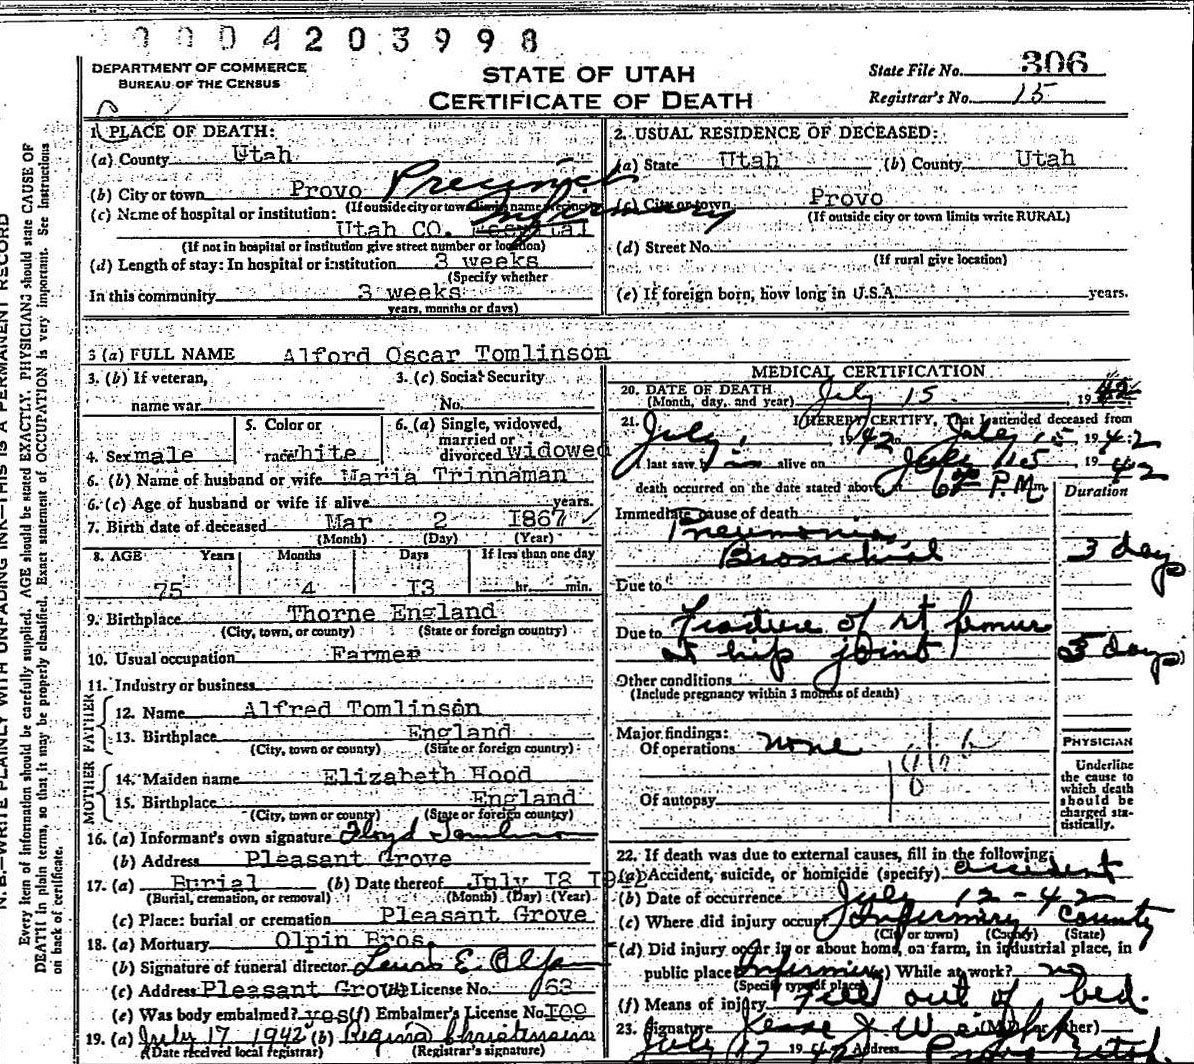 0 0 0 4 2 0 3 9 9 8
DEPARTMENT OF COMMERCE
BUREAU OF THE CENSUS
STATE OF UTAH
CERTIFICATE OF DEATH
State File No. 306
Registrar's No. 15
1. PLACE OF DEATH:
(a) County Utah
(b) City or town Provo Precinct
(If outside city or town limits name precinct)
(c) Name of hospital or institution: Infirmary
Utah CO. Hospital
(If not in hospital or institution give street number or location)
(d) Length of stay: In hospital or institution 3 weeks
(Specify whether
In this community 3 weeks
years, months or days)
2. USUAL RESIDENCE OF DECEASED:
(a) State Utah (b) County Utah
(c) City or town Provo
(If outside city or town limits write RURAL)
(d) Street No.
(If rural give location)
(e) If foreign born, how long in U.S.A. years.
3 (a) FULL NAME Alford Oscar Tomlinson
3. (b) If veteran,
name war
3. (c) Social Security
No.
4. Sex male
5. Color or
race white
6. (a) Single, widowed,
married or
divorced widowed
6. (b) Name of husband or wife Maria Trinnaman
6. (c) Age of husband or wife if alive years.
7. Birth date of deceased Mar 2 1867
(Month) (Day) (Year)
8. AGE Years Months Days If less than one day
75 4 13 hr. min.
9. Birthplace Thorne England
(City, town, or county) (State or foreign country)
10. Usual occupation Farmer
11. Industry or business
FATHER
12. Name Alfred Tomlinson
13. Birthplace England
(City, town or county) (State or foreign country)
MOTHER
14. Maiden name Elizabeth Hood
15. Birthplace England
(City, town or county) (State or foreign country)
16. (a) Informant's own signature Floyd Tomlinson
(b) Address Pleasant Grove
17. (a) Burial (b) Date thereof July 18 1942
(Burial, cremation, or removal) (Month) (Day) (Year)
(c) Place: burial or cremation Pleasant Grove
18. (a) Mortuary Olpin Bros.
(b) Signature of funeral director Lewis E. Olpin
(c) Address Pleasant Grove (d) License No. 63
(e) Was body embalmed? yes (f) Embalmer's License No. 109
19. (a) July 17 1942 (b) Regina Christensen
(Date received local registrar) (Registrar's signature)
MEDICAL CERTIFICATION
20. DATE OF DEATH July 15, 1942
(Month, day, and year)
21. I HEREBY CERTIFY, That I attended deceased from
July 1, 1942 to July 15 1942
I last saw him alive on July 15, 1942
death occurred on the date stated above at P.M. m.
Duration
Immediate cause of death
Pneumonia
Bronchial 3 days
Due to
Due to Fracture of rt femur
at hip joint
days
Other conditions
(Include pregnancy within 3 months of death)
Major findings:
Of operations none
Of autopsy
PHYSICIAN
Underline
the cause to
which death
should be
charged sta-
tistically.
22. If death was due to external causes, fill in the following:
(a) Accident, suicide, or homicide (specify) accident
(b) Date of occurrence July 12 - 42
(c) Where did injury occur? Infirmiry County
(City or town) (County) (State)
(d) Did injury occur in or about home, on farm, in industrial place, in
public place? Infirmiry (e) While at work? no
(Specify type of place)
(f) Means of injury Fell out of bed.
23. Signature Jesse J Weight (M.D. or other)
July 17 1942 Address Provo Utah.
N. B.—WRITE PLAINLY WITH UNFADING INK—THIS IS A PERMANENT RECORD
Every item of information should be carefully supplied. AGE should be stated EXACTLY. PHYSICIANS should state CAUSE OF
DEATH in plain terms, so that it may be properly classified. Exact statement of OCCUPATION is very important. See Instructions
on back of certificate.